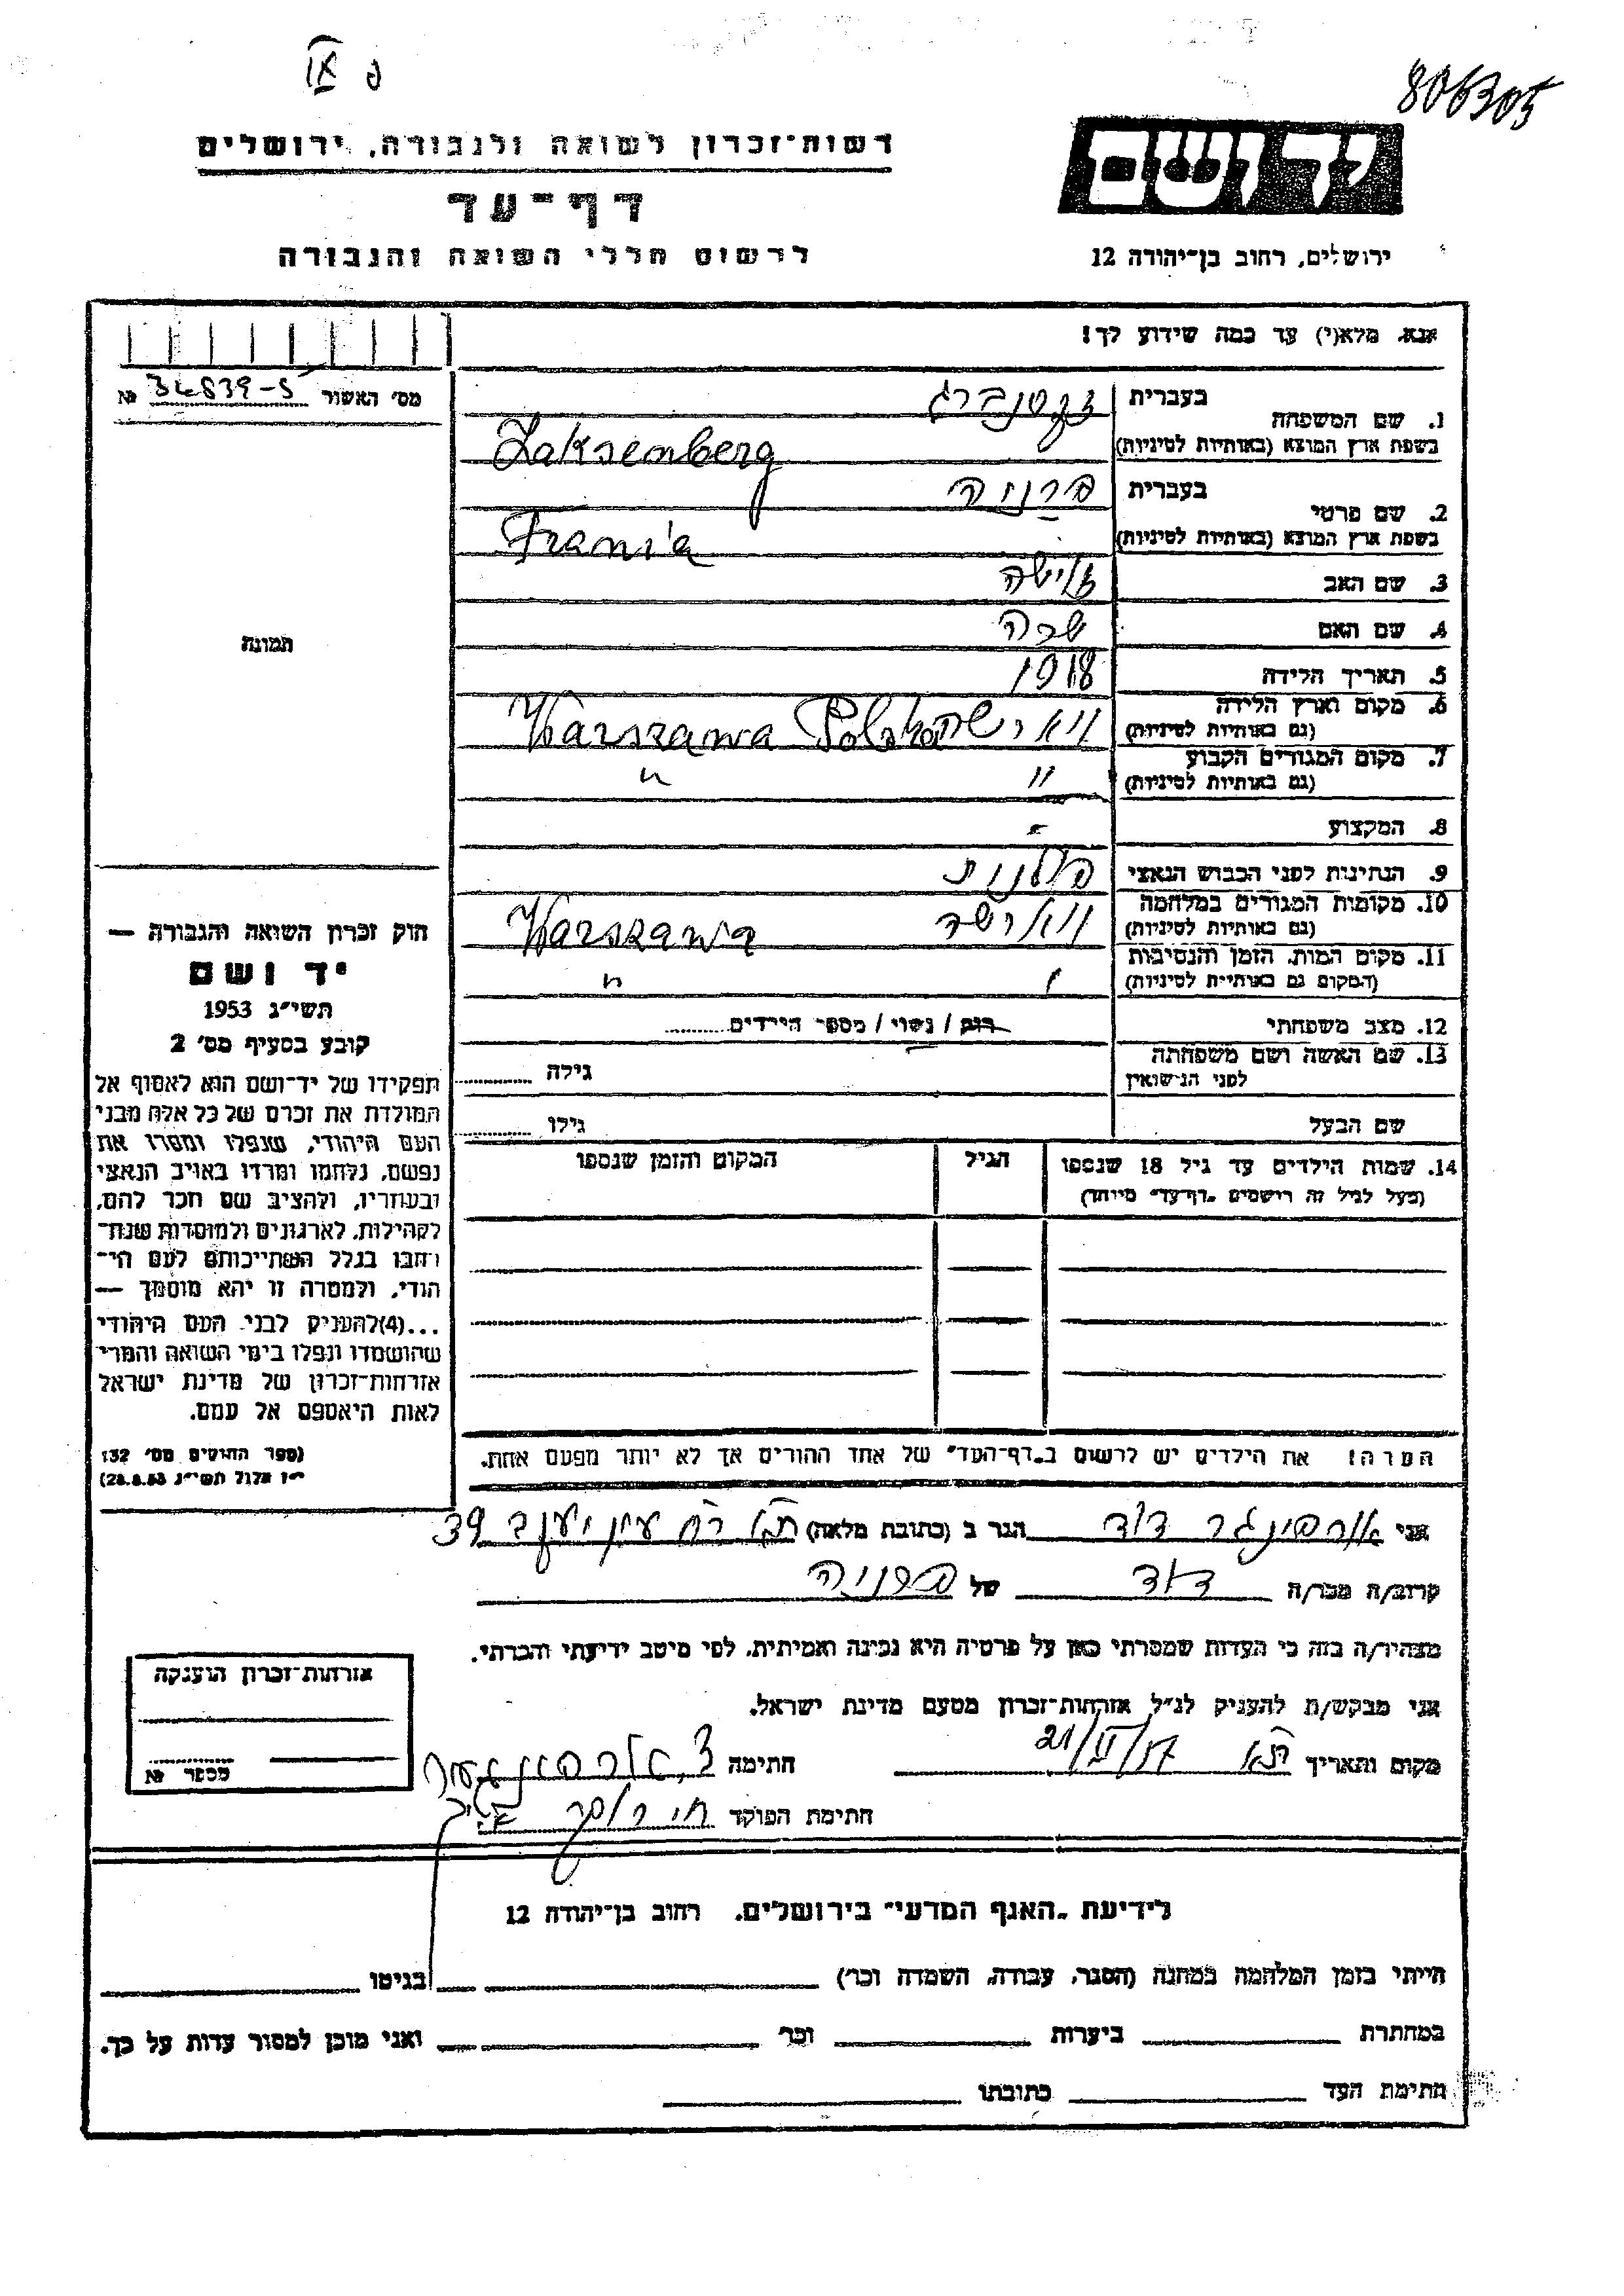 806305
רשות-זכרון לשואה ולגבורה, ירושלים
יד ושם
דף-עד
ירושלים, רחוב בן-יהודה 12
לרשום חללי השואה והגבורה
אנא, מלא(י) עד כמה שידוע לך!
מס׳ האשור № 34839-5
1. שם המשפחה
בעברית זקסנברג
בשפת ארץ המוצא (באותיות לטיניות) Zaksemberg
2. שם פרטי
בעברית פרניה
בשפת ארץ המוצא (באותיות לטיניות) Frania
3. שם האב
4. שם האם שרה
5. תאריך הלידה 1918
6. מקום וארץ הלידה
(גם באותיות לטיניות) ווארשה Warszawa Polska
7. מקום המגורים הקבוע
(גם באותיות לטיניות) " "
8. המקצוע -
9. הנתינות לפני הכבוש הנאצי פולנית
10. מקומות המגורים במלחמה
(גם באותיות לטיניות) ווארשה Warszawa
11. מקום המות, הזמן והנסיבות
(המקום גם באותיות לטיניות) "
12. מצב משפחתי רווק / נשוי / מספר הילדים
13. שם האשה ושם משפחתה
לפני הנישואין גילה
שם הבעל גילו
14. שמות הילדים עד גיל 18 שנספו הגיל המקום והזמן שנספו
(מעל לגיל זה רושמים "דף-עד" מיוחד)
הערה! את הילדים יש לרשום ב"דף-העד" של אחד ההורים אך לא יותר מפעם אחת.
תמונה
חוק זכרון השואה והגבורה —
יד ושם
תשי״ג 1953
קובע בסעיף מס׳ 2
תפקידו של יד-ושם הוא לאסוף אל
המולדת את זכרם של כל אלה מבני
העם היהודי, שנפלו ומסרו את
נפשם, נלחמו ומרדו באויב הנאצי
ובעוזריו, ולהציב שם וזכר להם,
לקהילות, לארגונים ולמוסדות שנח-
רבו בגלל השתייכותם לעם הי-
הודי, ולמטרה זו יהא מוסמך —
...(4)להעניק לבני העם היהודי
שהושמדו ונפלו בימי השואה והמרי
אזרחות-זכרון של מדינת ישראל
לאות היאספם אל עמם.
(ספר החוקים מס׳ 132
י״ז אלול תשי״ג 28.8.53)
אני אורפינגר דוד הגר ב (כתובת מלאה) ת״א רח׳ עין יעקב 39
קרוב/ה מכר/ה דוד של פרניה
מצהיר/ה בזה כי העדות שמסרתי כאן על פרטיה היא נכונה ואמיתית, לפי מיטב ידיעתי והכרתי.
אני מבקש/ת להעניק לנ״ל אזרחות-זכרון מטעם מדינת ישראל.
מקום ותאריך ת״א חתימה ד. אורפינגר
חתימת הפוקד
אזרחות-זכרון הוענקה
מספר №
לידיעת "האגף המדעי" בירושלים, רחוב בן-יהודה 12
הייתי בזמן המלחמה במחנה (הסגר, עבודה, השמדה וכו׳) בגיטו
במחתרת ביערות וכו׳ ואני מוכן למסור עדות על כך.
חתימת העד כתובתו